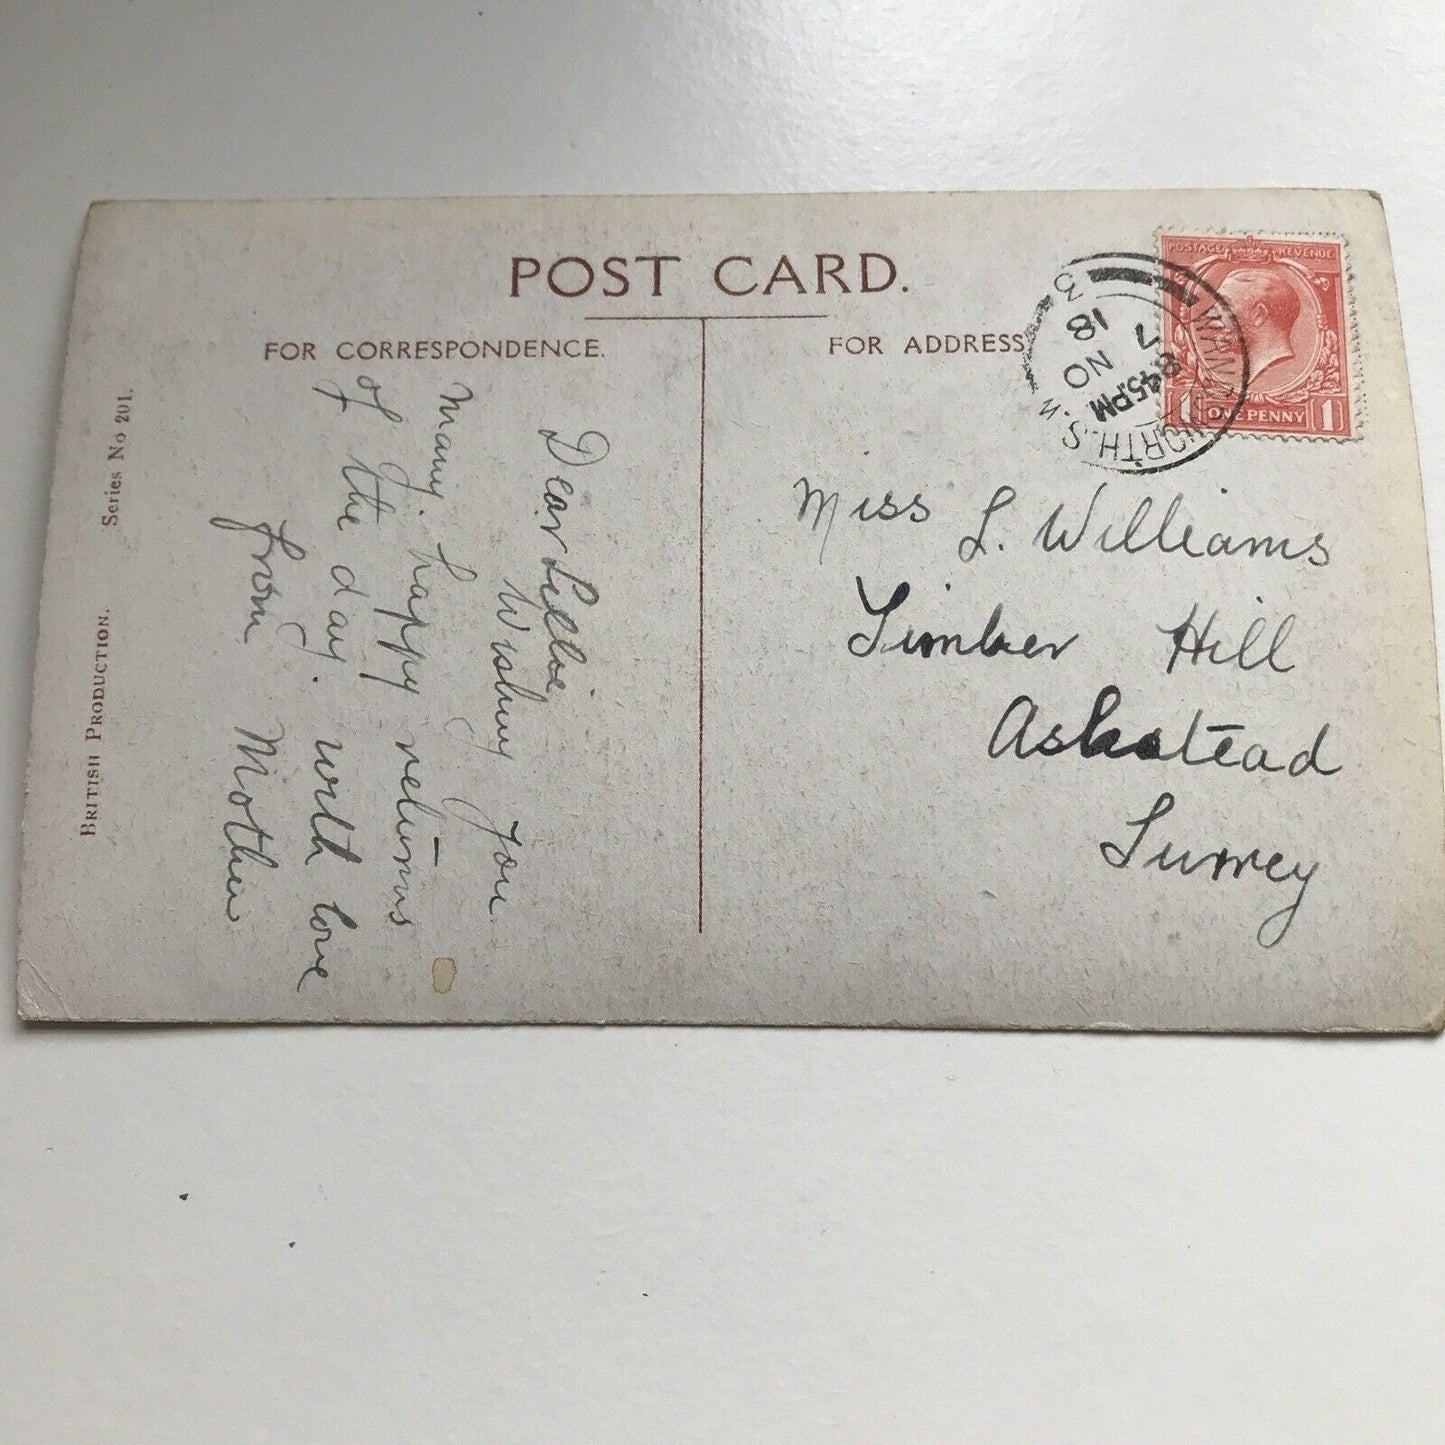 POST CARD.
FOR CORRESPONDENCE.
FOR ADDRESS
Dear Lillie
Wishing you
Many. happy returns
of the day. with love
from Mother
Miss L. Williams
Timber Hill
Ashstead
Surrey
POSTAGE REVENUE
ONE PENNY
1 1
WANDSWORTH. S.W.
8.45.PM
7 NO
18
3
Series No 201.
BRITISH PRODUCTION.